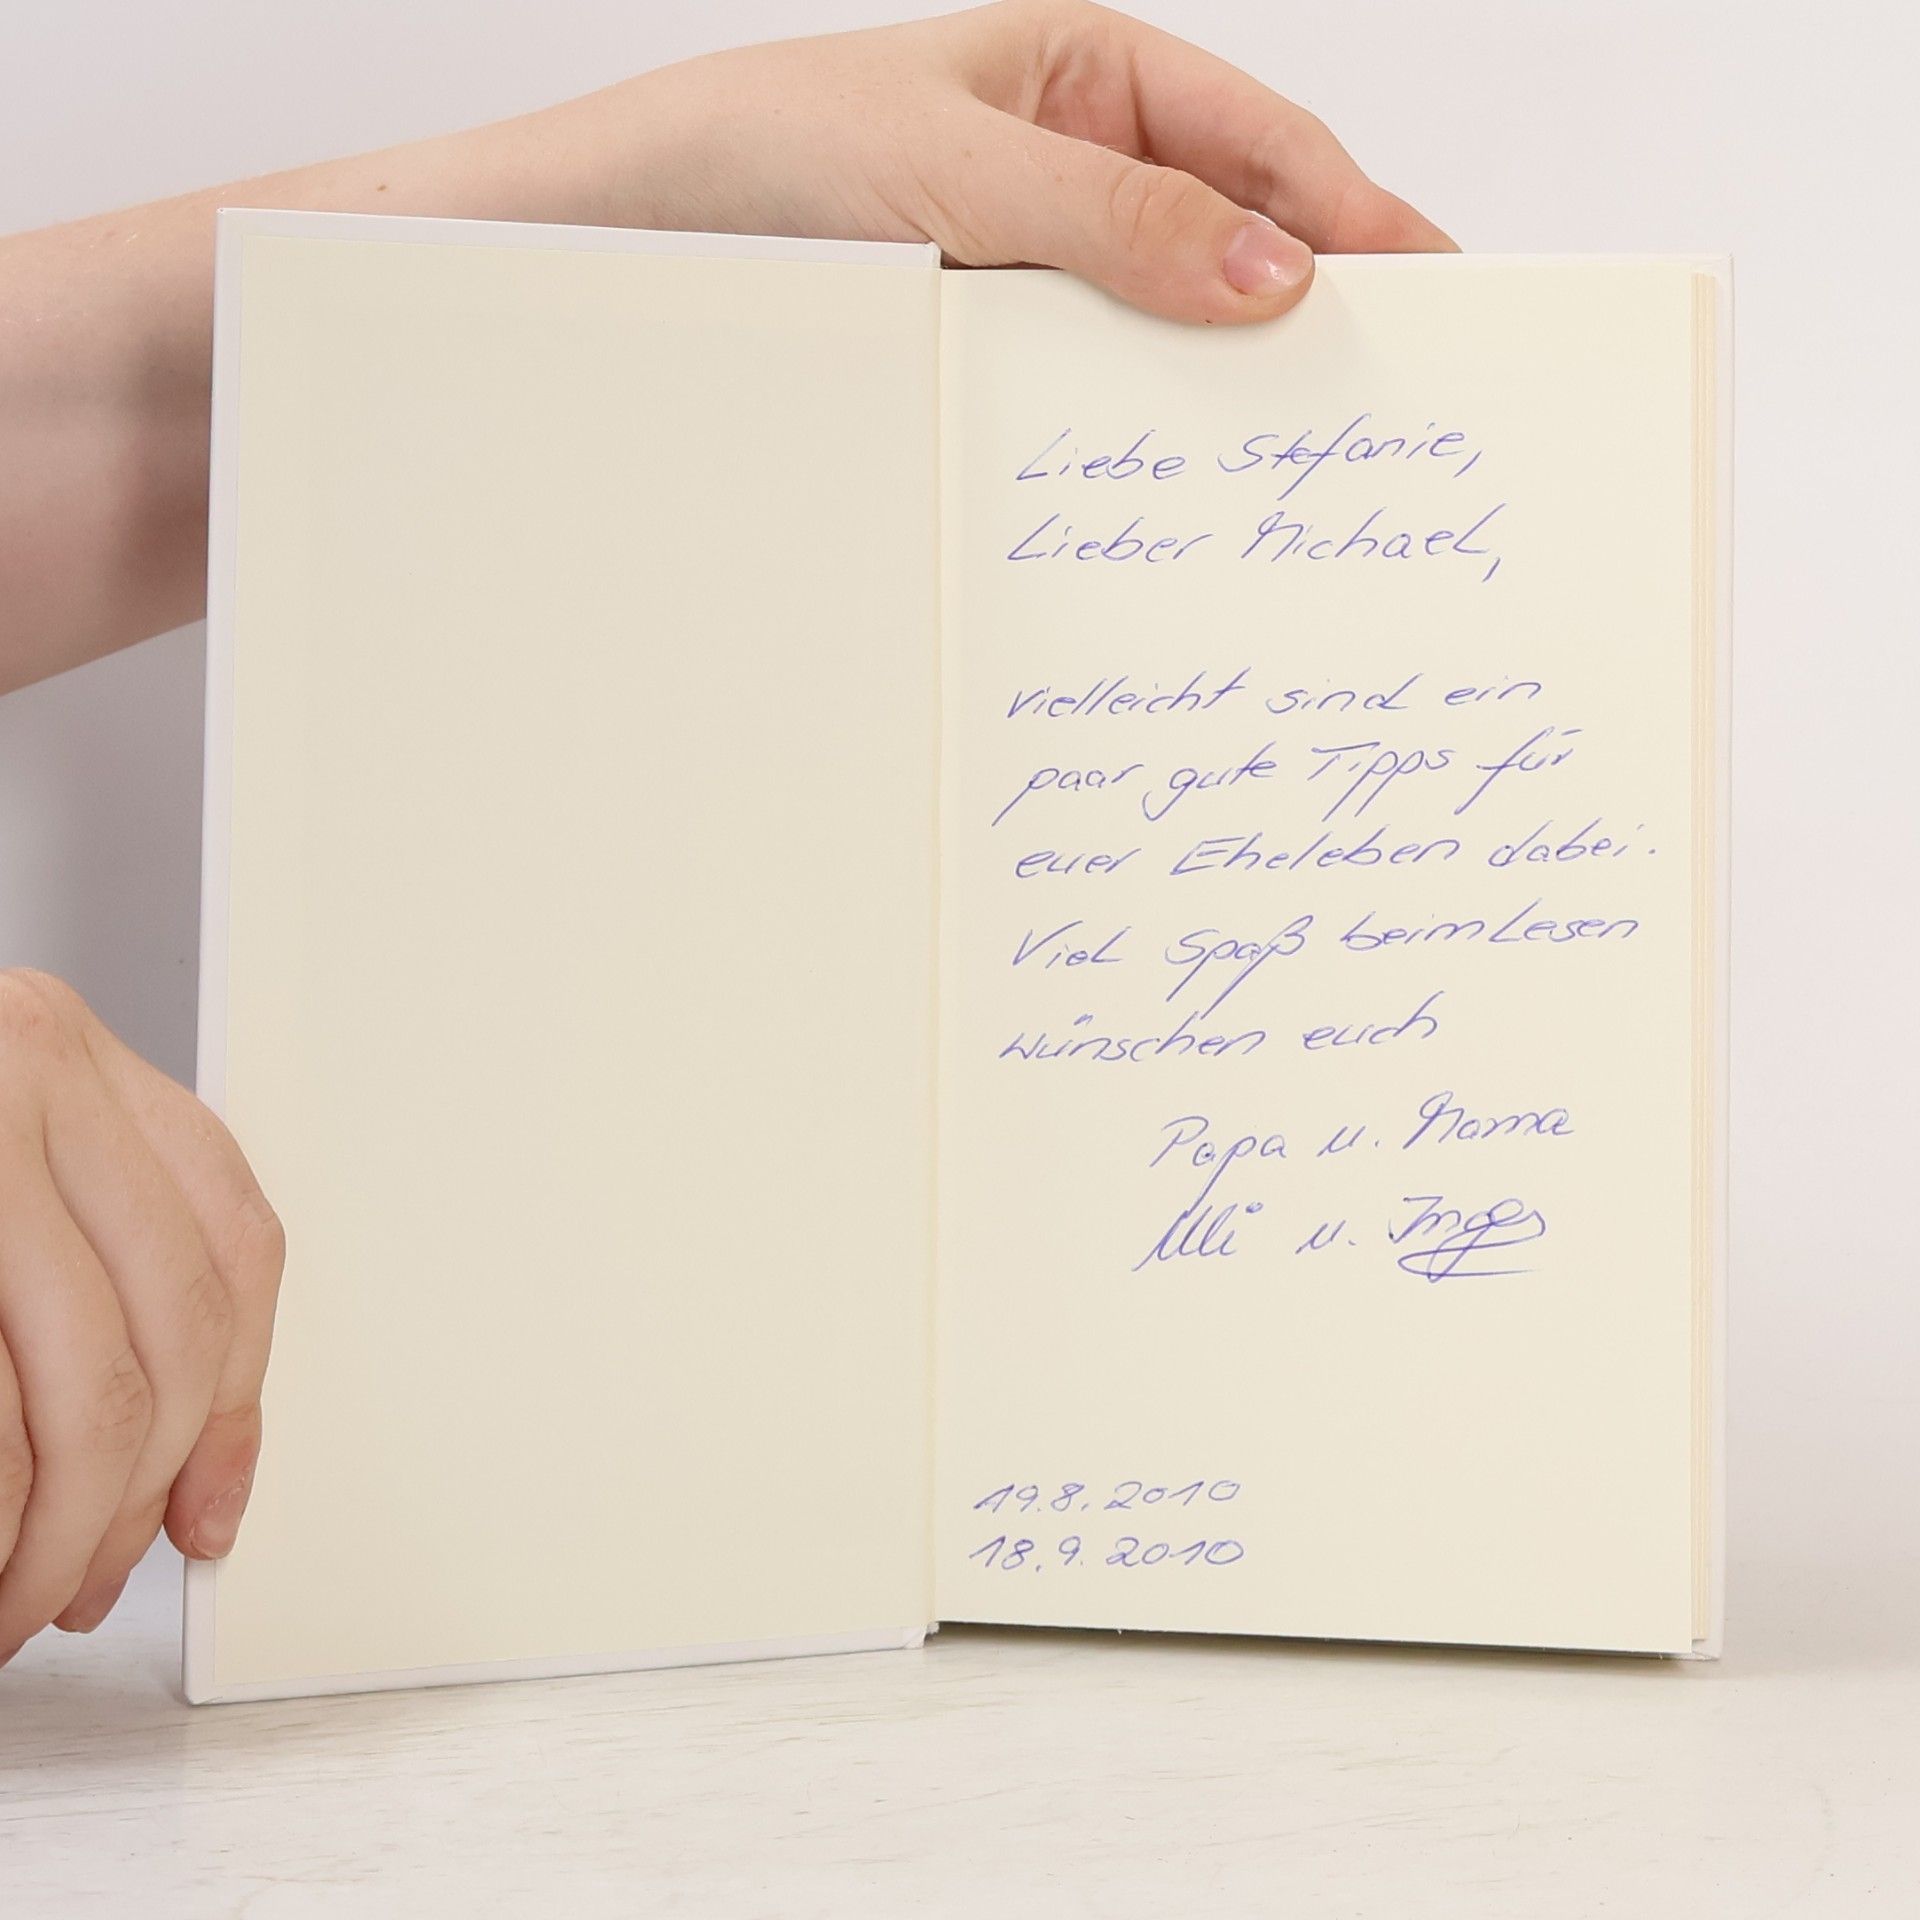 Liebe Stefanie,
Lieber Michael,
vielleicht sind ein
paar gute Tipps für
euer Eheleben dabei.
Viel Spaß beim Lesen
wünschen euch
Papa u. Mama
Ulli u. Inge
19.8.2010
18.9.2010